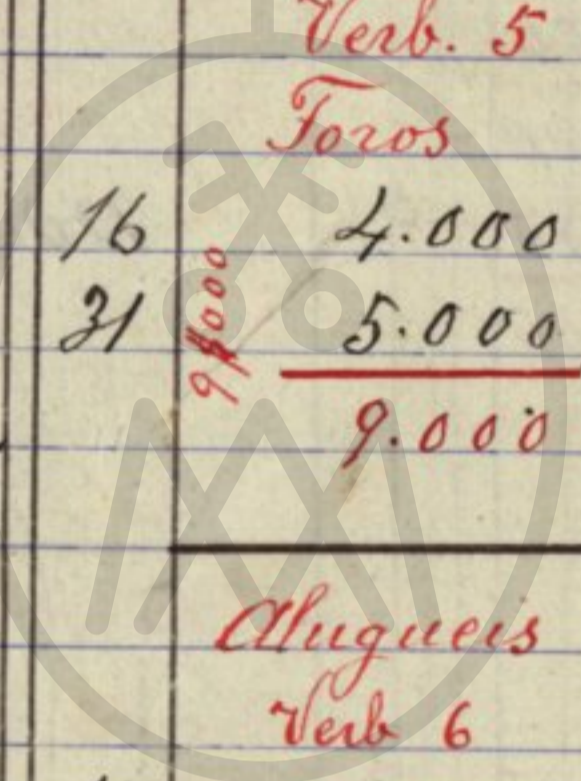 Verb. 5
Foros
16 4.000
31 5.000
9.000
Alugueis
Verb 6